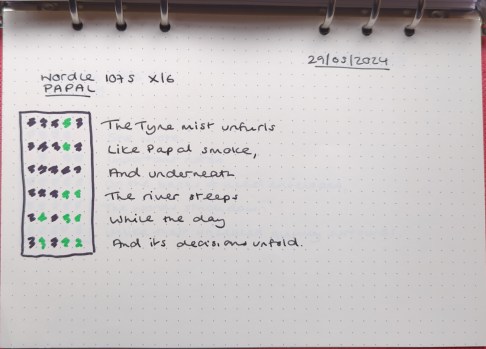 29/05/2024
Wordle 1075 X/6
PAPAL
The Tyne mist unfurls
Like Papal smoke,
And underneath
The river sleeps
While the day
And its decisions unfold.